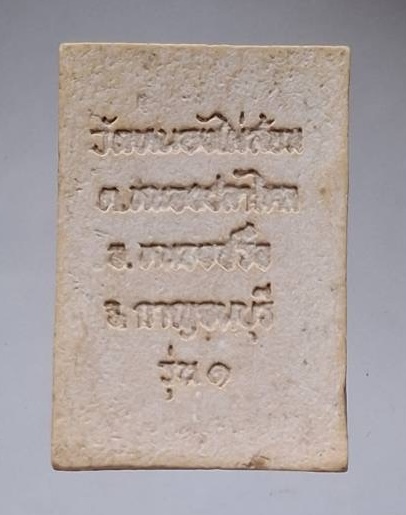 วัดหนองไผ่ล้อม
ต.หนองปลาไหล
อ.หนองปรือ
จ.กาญจนบุรี
รุ่น ๑